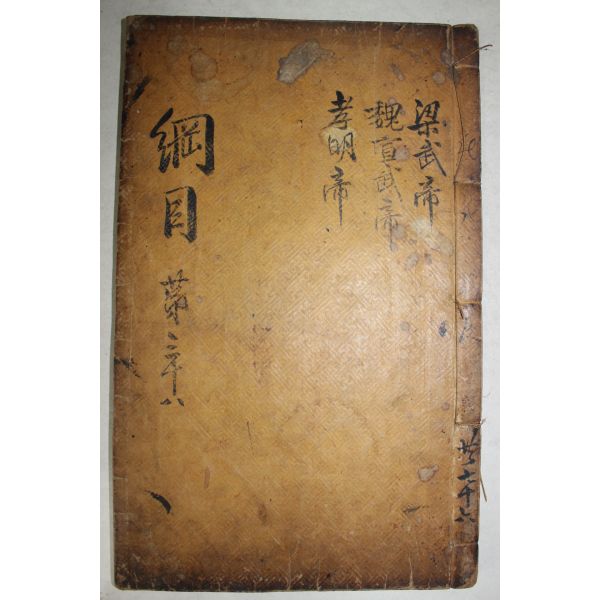 梁武帝
魏宣武帝
孝明帝
綱目
第二十八
共七十六